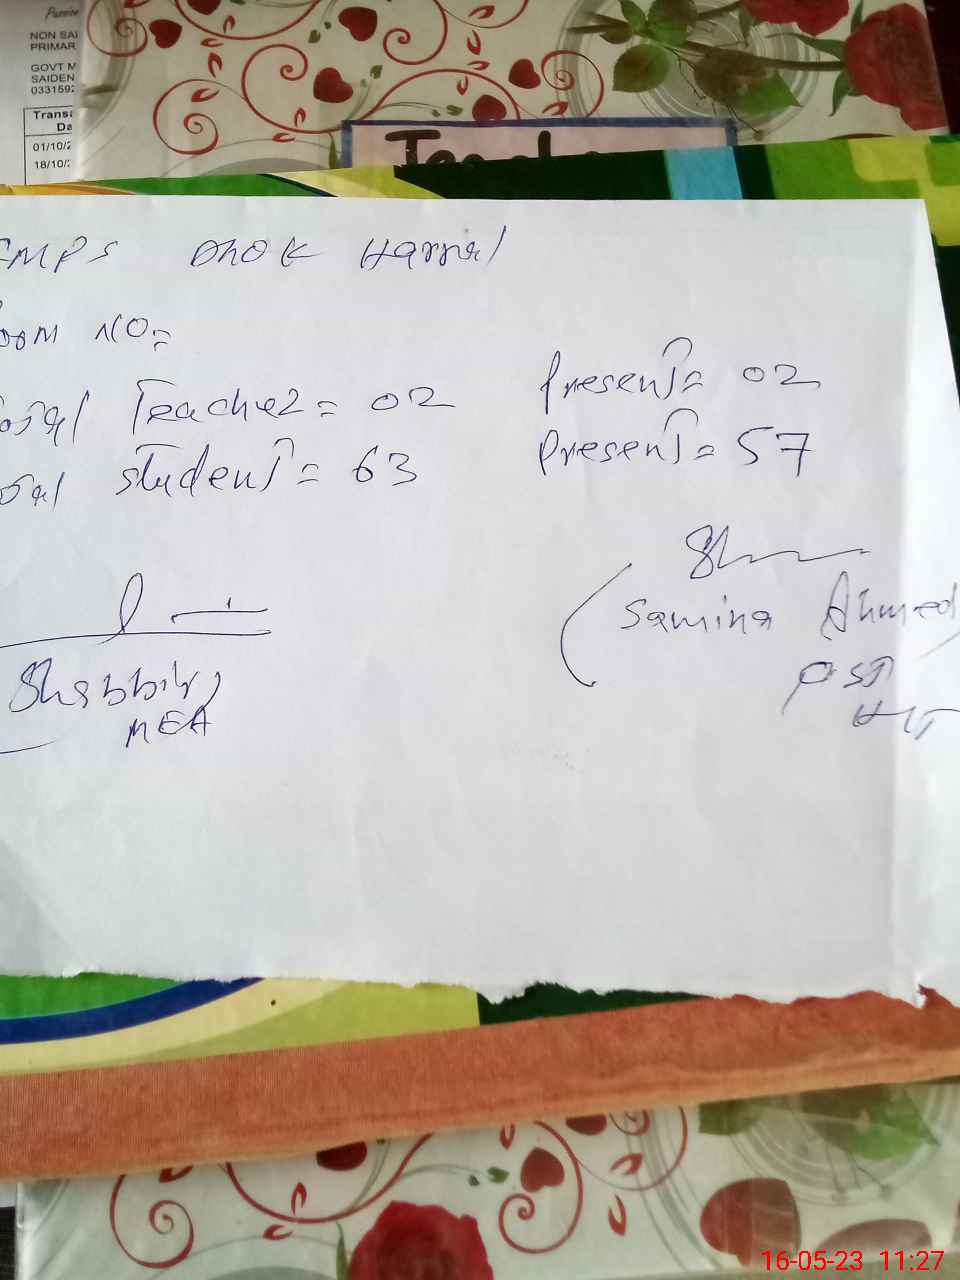 NON SAL
PRIMAR
GOVT M
SAIDEN
033159
Transa
Da
01/10/2
18/10/2
MPS Dhok Harnal
oom NO=
Total Teacher = 02 Present = 02
Total student = 63 Present = 57
Shabbir
MEA
Samina Ahmed
PST
16-05-23 11:27